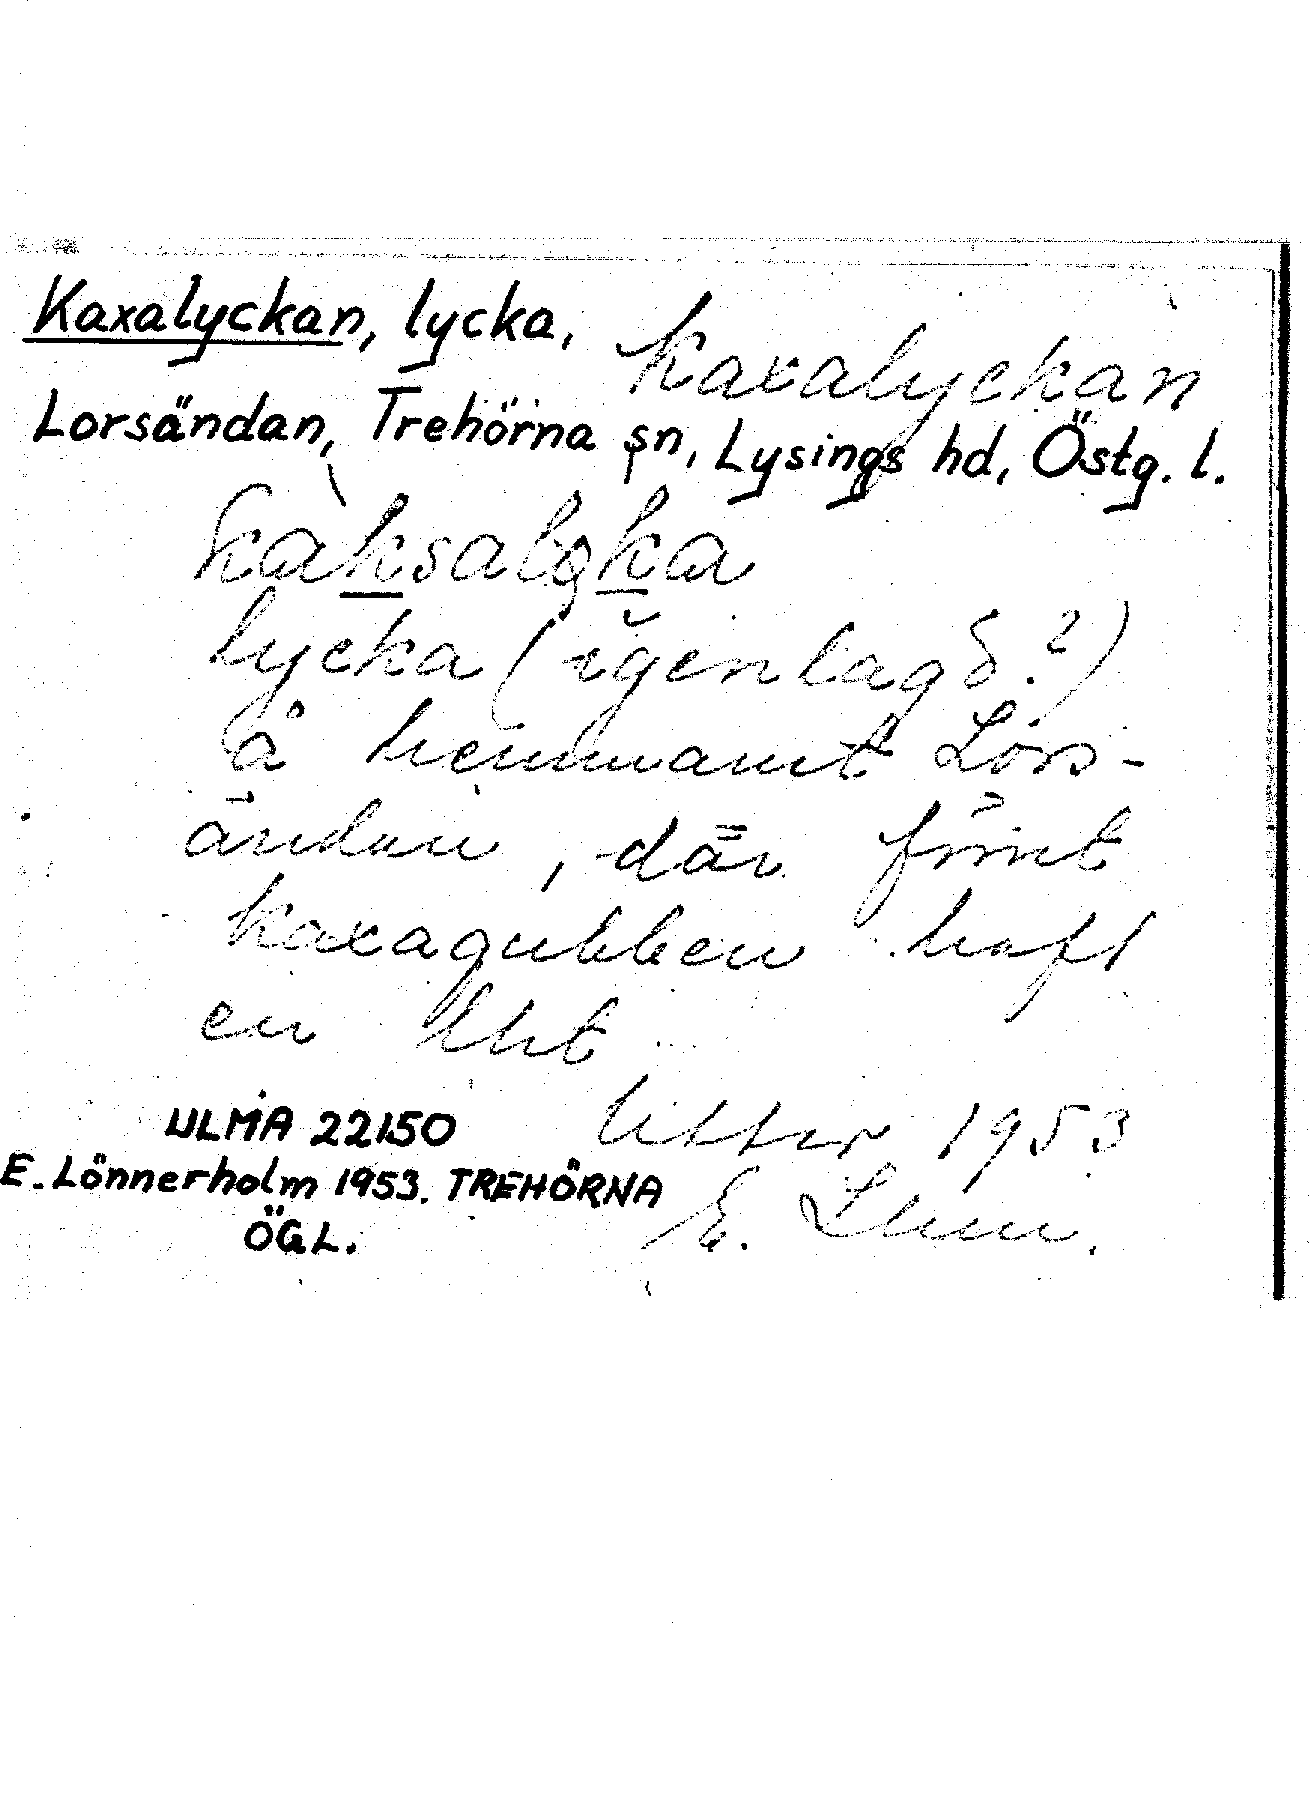 Kaxalyckan, lycka,
Kaxalyckan
Lorsändan, Trehörna sn, Lysings hd, Östg. l.
lycka (igenlagd?)
å hemmanet Lors-
ändan, där förut
Kaxagubben haft
en
ULMA 22150
1953
E. Lönnerholm 1953. TREHÖRNA
E.
ÖGL.